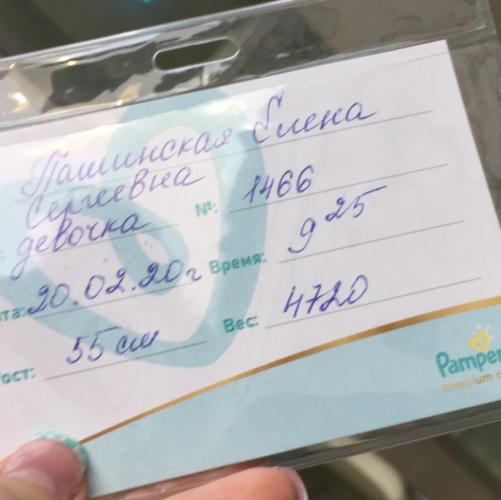 Пашинская Елена
Сергеевна
девочка №: 1466
та: 20.02.20г Время: 9 25
ост: 55 см Вес: 4720
Pampers
premium c